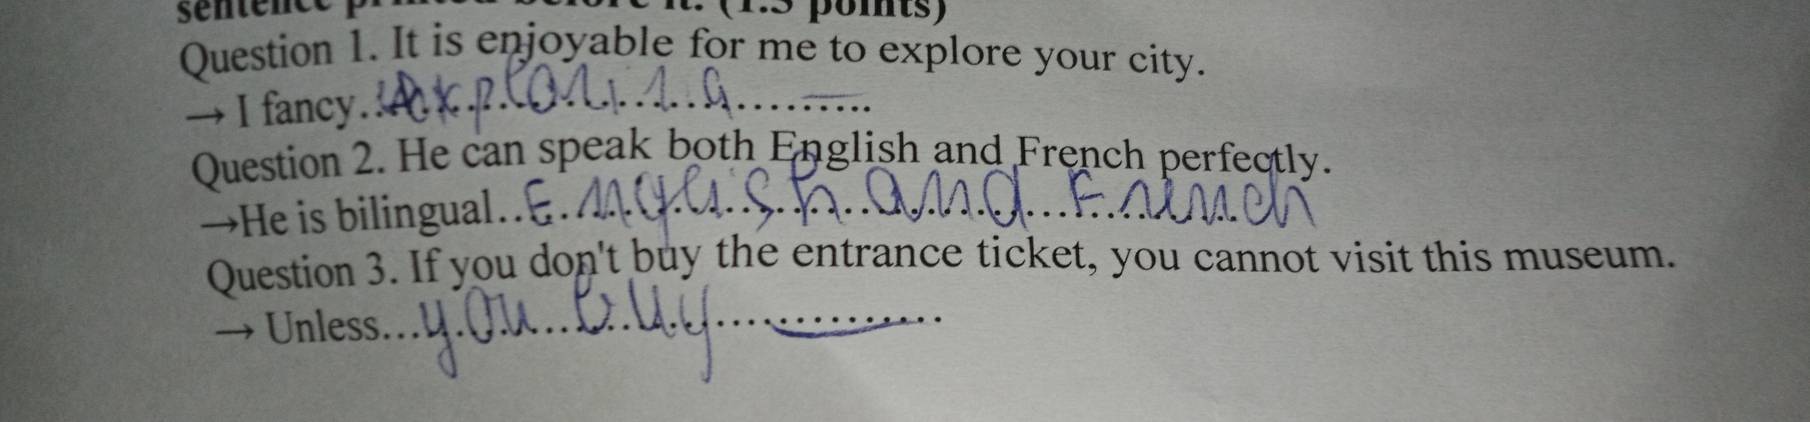 sentence printed before it. (1.5 points)
Question 1. It is enjoyable for me to explore your city.
→ I fancy..exploring..........
Question 2. He can speak both English and French perfectly.
→He is bilingual..English and French
Question 3. If you don't buy the entrance ticket, you cannot visit this museum.
→ Unless...you buy................